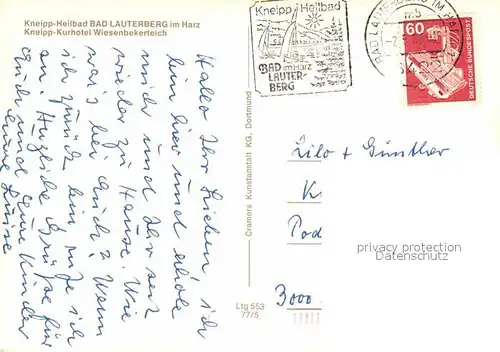 Kneipp-Heilbad BAD LAUTERBERG im Harz
Kneipp-Kurhotel Wiesenbekerteich
Hallo Ihr Lieben, ich
bin hier und erhole
mich und Ihr seid
wieder zu Hause. Wie
war's bei Euch? Wenn
ich zurück bin rufe ich
an. Herzliche Grüße für
Euch und Eure Kinder
Eure Luise
Cramers Kunstanstalt KG, Dortmund
Ltg 553
77/5
Kneipp Heilbad
BAD im Harz
LAUTER-
BERG
BAD LAUTERBERG IM HARZ
60
DEUTSCHE BUNDESPOST
Lilo + Günther
K
Pod
3000
privacy protection
Datenschutz